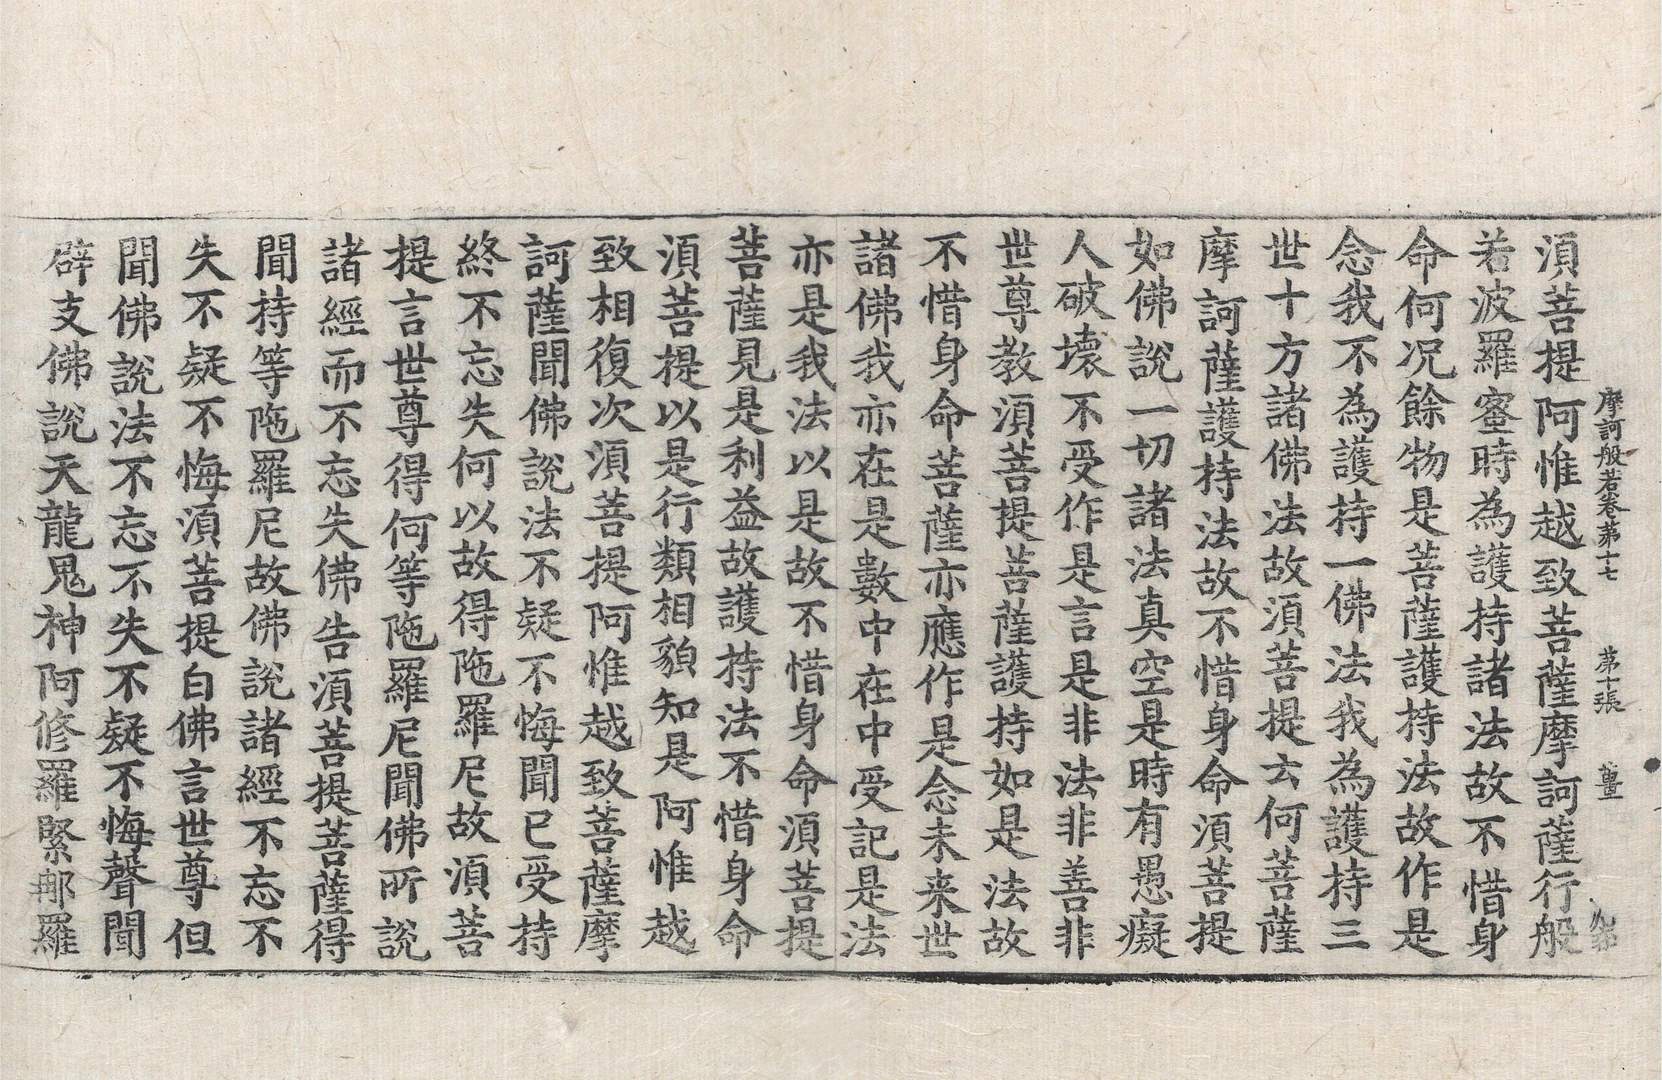 摩訶般若卷第十七　第十張　董
須菩提阿惟越致菩薩摩訶薩行般
若波羅蜜時為護持諸法故不惜身
命何况餘物是菩薩護持法故作是
念我不為護持一佛法我為護持三
世十方諸佛法故須菩提云何菩薩
摩訶薩護持法故不惜身命須菩提
如佛說一切諸法真空是時有愚癡
人破壞不受作是言是非法非善非
世尊教須菩提菩薩護持如是法故
不惜身命菩薩亦應作是念未来世
諸佛我亦在是數中在中受記是法
亦是我法以是故不惜身命須菩提
菩薩見是利益故護持法不惜身命
須菩提以是行類相貌知是阿惟越
致相復次須菩提阿惟越致菩薩摩
訶薩聞佛說法不疑不悔聞已受持
終不忘失何以故得陁羅尼故須菩
提言世尊得何等陁羅尼聞佛所說
諸經而不忘失佛告須菩提菩薩得
聞持等陁羅尼故佛說諸經不忘不
失不疑不悔須菩提白佛言世尊但
聞佛說法不忘不失不疑不悔聲聞
辟支佛說天龍鬼神阿修羅緊那羅